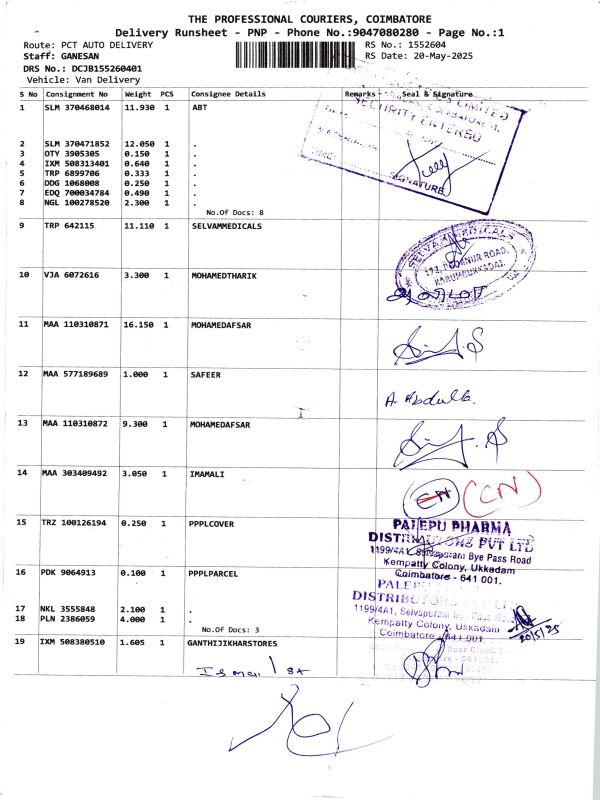 THE PROFESSIONAL COURIERS, COIMBATORE
Delivery Runsheet - PNP - Phone No.:9047080280 - Page No.:1
Route: PCT AUTO DELIVERY RS No.: 1552604
Staff: GANESAN RS Date: 20-May-2025
DRS No.: DCJB155260401
Vehicle: Van Delivery
S No Consignment No Weight PCS Consignee Details Remarks Seal & Signature
1 SLM 370468014 11.930 1 ABT
LIMITED
SECURITY ENTERED
TIME
SIGNATURE
2 SLM 370471852 12.050 1 .
3 OTY 3905305 0.150 1 .
4 IXM 508313401 0.640 1 .
5 TRP 6899706 0.333 1 .
6 DDG 1068008 0.250 1 .
7 EDQ 700034784 0.490 1 .
8 NGL 100278520 2.300 1 .
No.Of Docs: 8
9 TRP 642115 11.110 1 SELVAMMEDICALS
SELVAM MEDICALS
ROAD,
10 VJA 6072616 3.300 1 MOHAMEDTHARIK
11 MAA 110310871 16.150 1 MOHAMEDAFSAR
12 MAA 577189689 1.000 1 SAFEER
A. Abdulla
13 MAA 110310872 9.300 1 MOHAMEDAFSAR
14 MAA 303409492 3.050 1 IMAMALI
CN (CN)
15 TRZ 100126194 0.250 1 PPPLCOVER
PALEPU PHARMA
DISTRIBUTORS PVT LTD
1199/4A1, Selvapuram Bye Pass Road
Kempatty Colony, Ukkadam
Coimbatore - 641 001.
16 PDK 9064913 0.100 1 PPPLPARCEL
PALEPU
DISTRIBUTORS
1199/4A1, Selvapuram Bye Pass Road
Kempatty Colony, Ukkadam
Coimbatore - 641 001
20/5/25
17 NKL 3555848 2.100 1 .
18 PLN 2386059 4.000 1 .
No.Of Docs: 3
19 IXM 508380510 1.605 1 GANTHIJIKHARSTORES